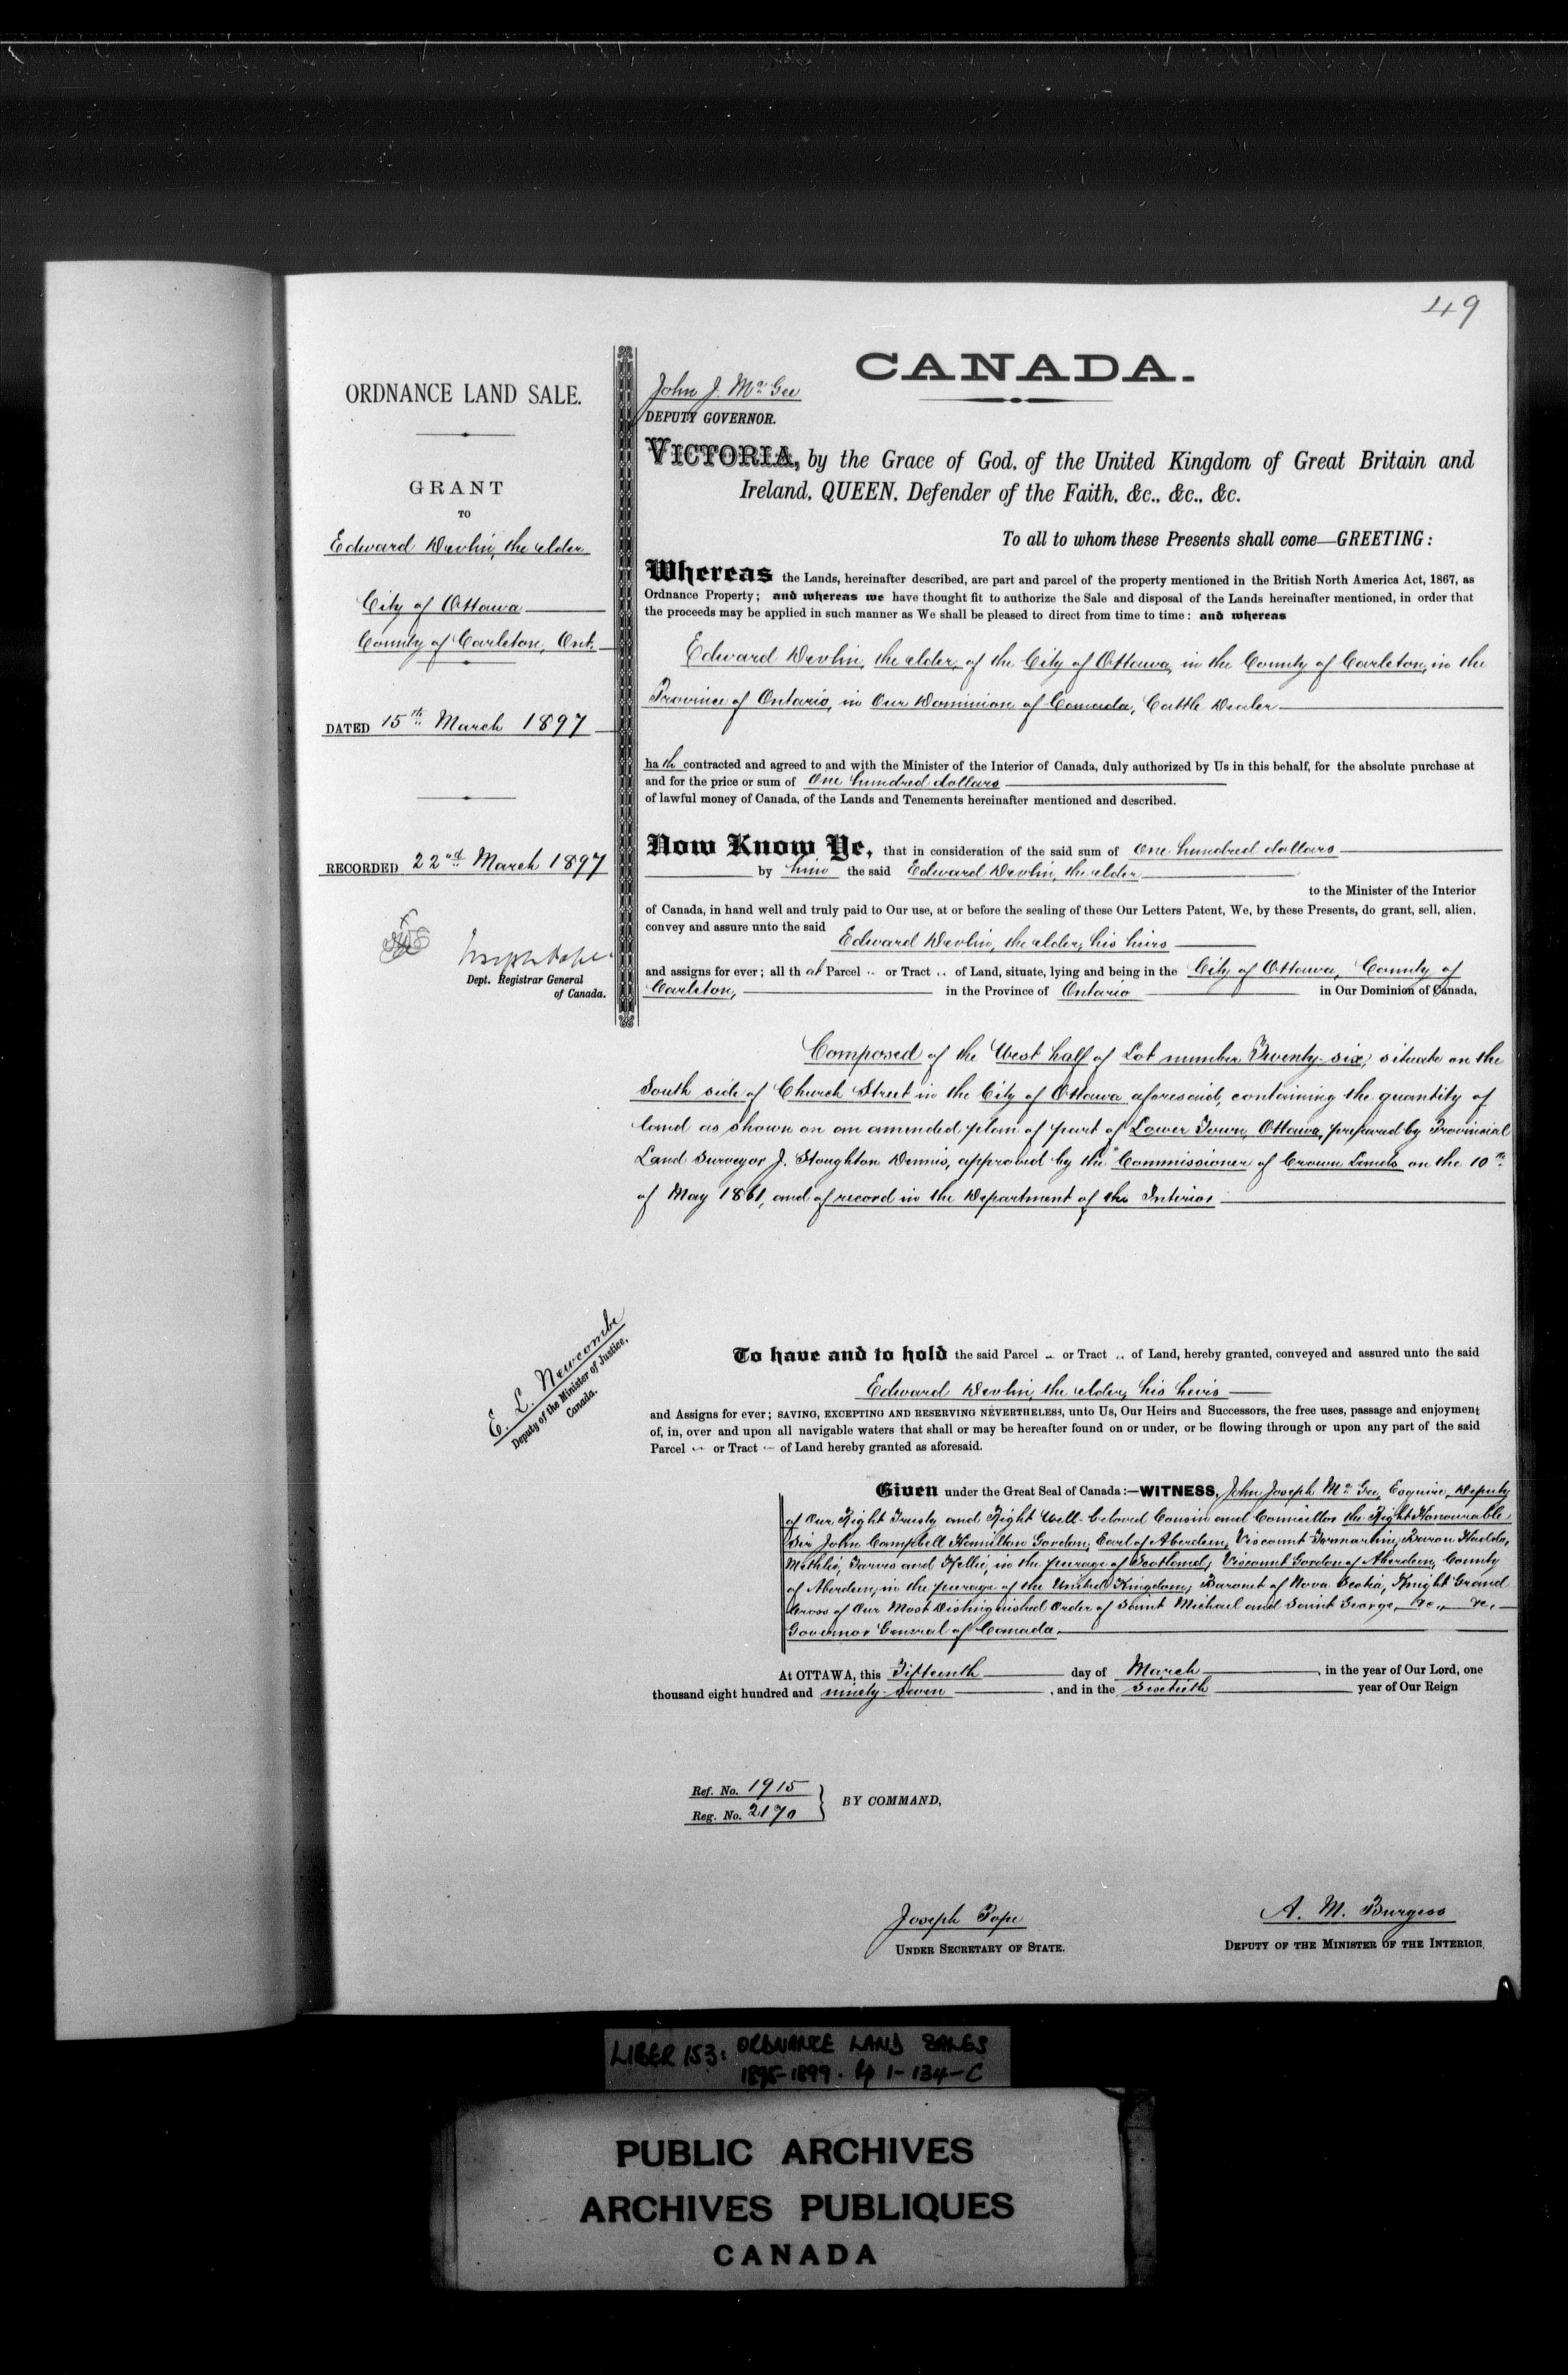 49
ORDNANCE LAND SALE.
GRANT
TO
Edward Devlin, the elder
City of Ottawa
County of Carleton, Ont.
DATED 15th March 1897
RECORDED 22nd March 1897
Joseph Pope
Dept. Registrar General
of Canada.
E. L. Newcombe
Deputy of the Minister of Justice,
Canada.
CANADA.
John J. McGee
DEPUTY GOVERNOR.
VICTORIA, by the Grace of God, of the United Kingdom of Great Britain and
Ireland, QUEEN, Defender of the Faith, &c., &c., &c.
To all to whom these Presents shall come—GREETING:
Whereas the Lands, hereinafter described, are part and parcel of the property mentioned in the British North America Act, 1867, as
Ordnance Property; and whereas we have thought fit to authorize the Sale and disposal of the Lands hereinafter mentioned, in order that
the proceeds may be applied in such manner as We shall be pleased to direct from time to time: and whereas
Edward Devlin, the elder, of the City of Ottawa, in the County of Carleton, in the
Province of Ontario, in Our Dominion of Canada, Cattle Dealer
hath contracted and agreed to and with the Minister of the Interior of Canada, duly authorized by Us in this behalf, for the absolute purchase at
and for the price or sum of One hundred dollars
of lawful money of Canada, of the Lands and Tenements hereinafter mentioned and described.
Now Know Ye, that in consideration of the said sum of One hundred dollars
by him the said Edward Devlin, the elder
to the Minister of the Interior
of Canada, in hand well and truly paid to Our use, at or before the sealing of these Our Letters Patent, We, by these Presents, do grant, sell, alien,
convey and assure unto the said
Edward Devlin, the elder, his heirs
and assigns for ever; all that Parcel or Tract of Land, situate, lying and being in the City of Ottawa, County of
Carleton, in the Province of Ontario in Our Dominion of Canada,
Composed of the West half of Lot number Twenty-six, situate on the
South side of Church Street in the City of Ottawa aforesaid, containing the quantity of
land as shown on an amended plan of part of Lower Town, Ottawa, prepared by Provincial
Land Surveyor J. Stoughton Dennis, approved by the Commissioner of Crown Lands on the 10th
of May 1861, and of record in the Department of the Interior
To have and to hold the said Parcel or Tract of Land, hereby granted, conveyed and assured unto the said
Edward Devlin, the elder, his heirs
and Assigns for ever; SAVING, EXCEPTING AND RESERVING NEVERTHELESS, unto Us, Our Heirs and Successors, the free uses, passage and enjoyment
of, in, over and upon all navigable waters that shall or may be hereafter found on or under, or be flowing through or upon any part of the said
Parcel or Tract of Land hereby granted as aforesaid.
Given under the Great Seal of Canada:—WITNESS, John Joseph McGee, Esquire, Deputy
of Our Right Trusty and Right Well-beloved Cousin and Councillor the Right Honourable
Sir John Campbell Hamilton Gordon, Earl of Aberdeen, Viscount Formartine, Baron Haddo,
Methlic, Tarves and Kellie, in the peerage of Scotland; Viscount Gordon of Aberdeen, County
of Aberdeen, in the peerage of the United Kingdom; Baronet of Nova Scotia, Knight Grand
Cross of Our Most Distinguished Order of Saint Michael and Saint George, &c., &c.,
Governor General of Canada.
At OTTAWA, this Fifteenth day of March, in the year of Our Lord, one
thousand eight hundred and ninety-seven, and in the Sixtieth year of Our Reign
Ref. No. 1915
Reg. No. 2170
BY COMMAND,
Joseph Pope
UNDER SECRETARY OF STATE.
A. M. Burgess
DEPUTY OF THE MINISTER OF THE INTERIOR.
LIBER 153: ORDNANCE LAND SALES
1895-1899. 1-134-C
PUBLIC ARCHIVES
ARCHIVES PUBLIQUES
CANADA